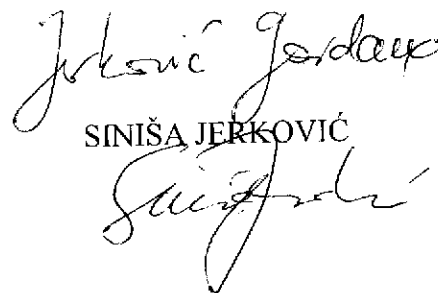 Jerković Gordana
SINIŠA JERKOVIĆ